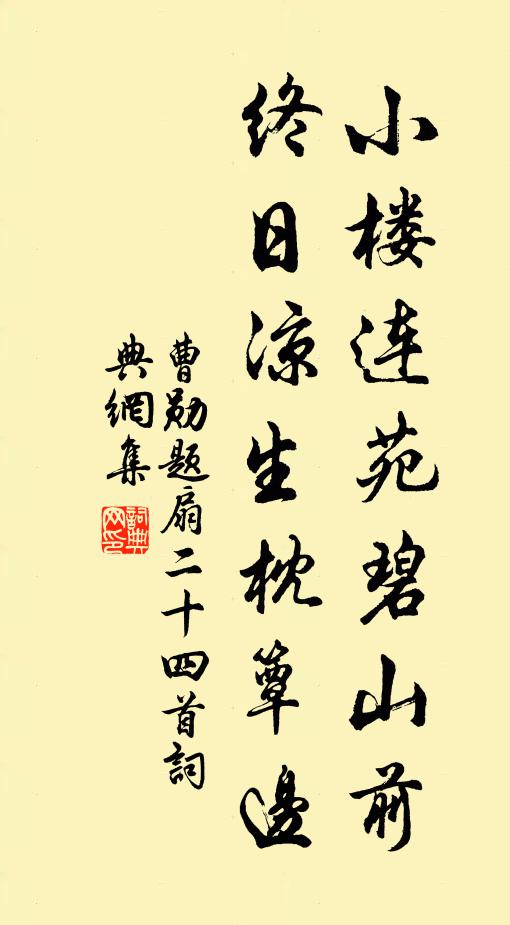 小楼连苑碧山前
终日凉生枕簟邊
曹勛题扇二十四首詞
典網集
詞典
网印